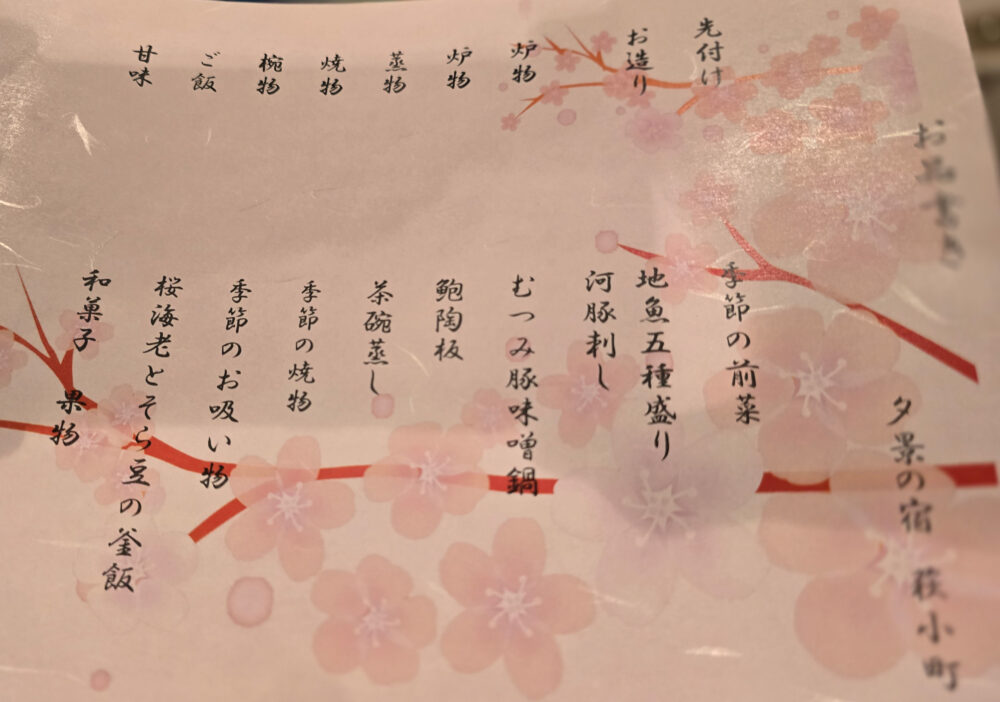 お品書き
夕景の宿　萩小町
先付け　季節の前菜
お造り　地魚五種盛り
河豚刺し
炉物　むつみ豚味噌鍋
炉物　鮑陶板
蒸物　茶碗蒸し
焼物　季節の焼物
椀物　季節のお吸い物
ご飯　桜海老とそら豆の釜飯
甘味　和菓子　果物